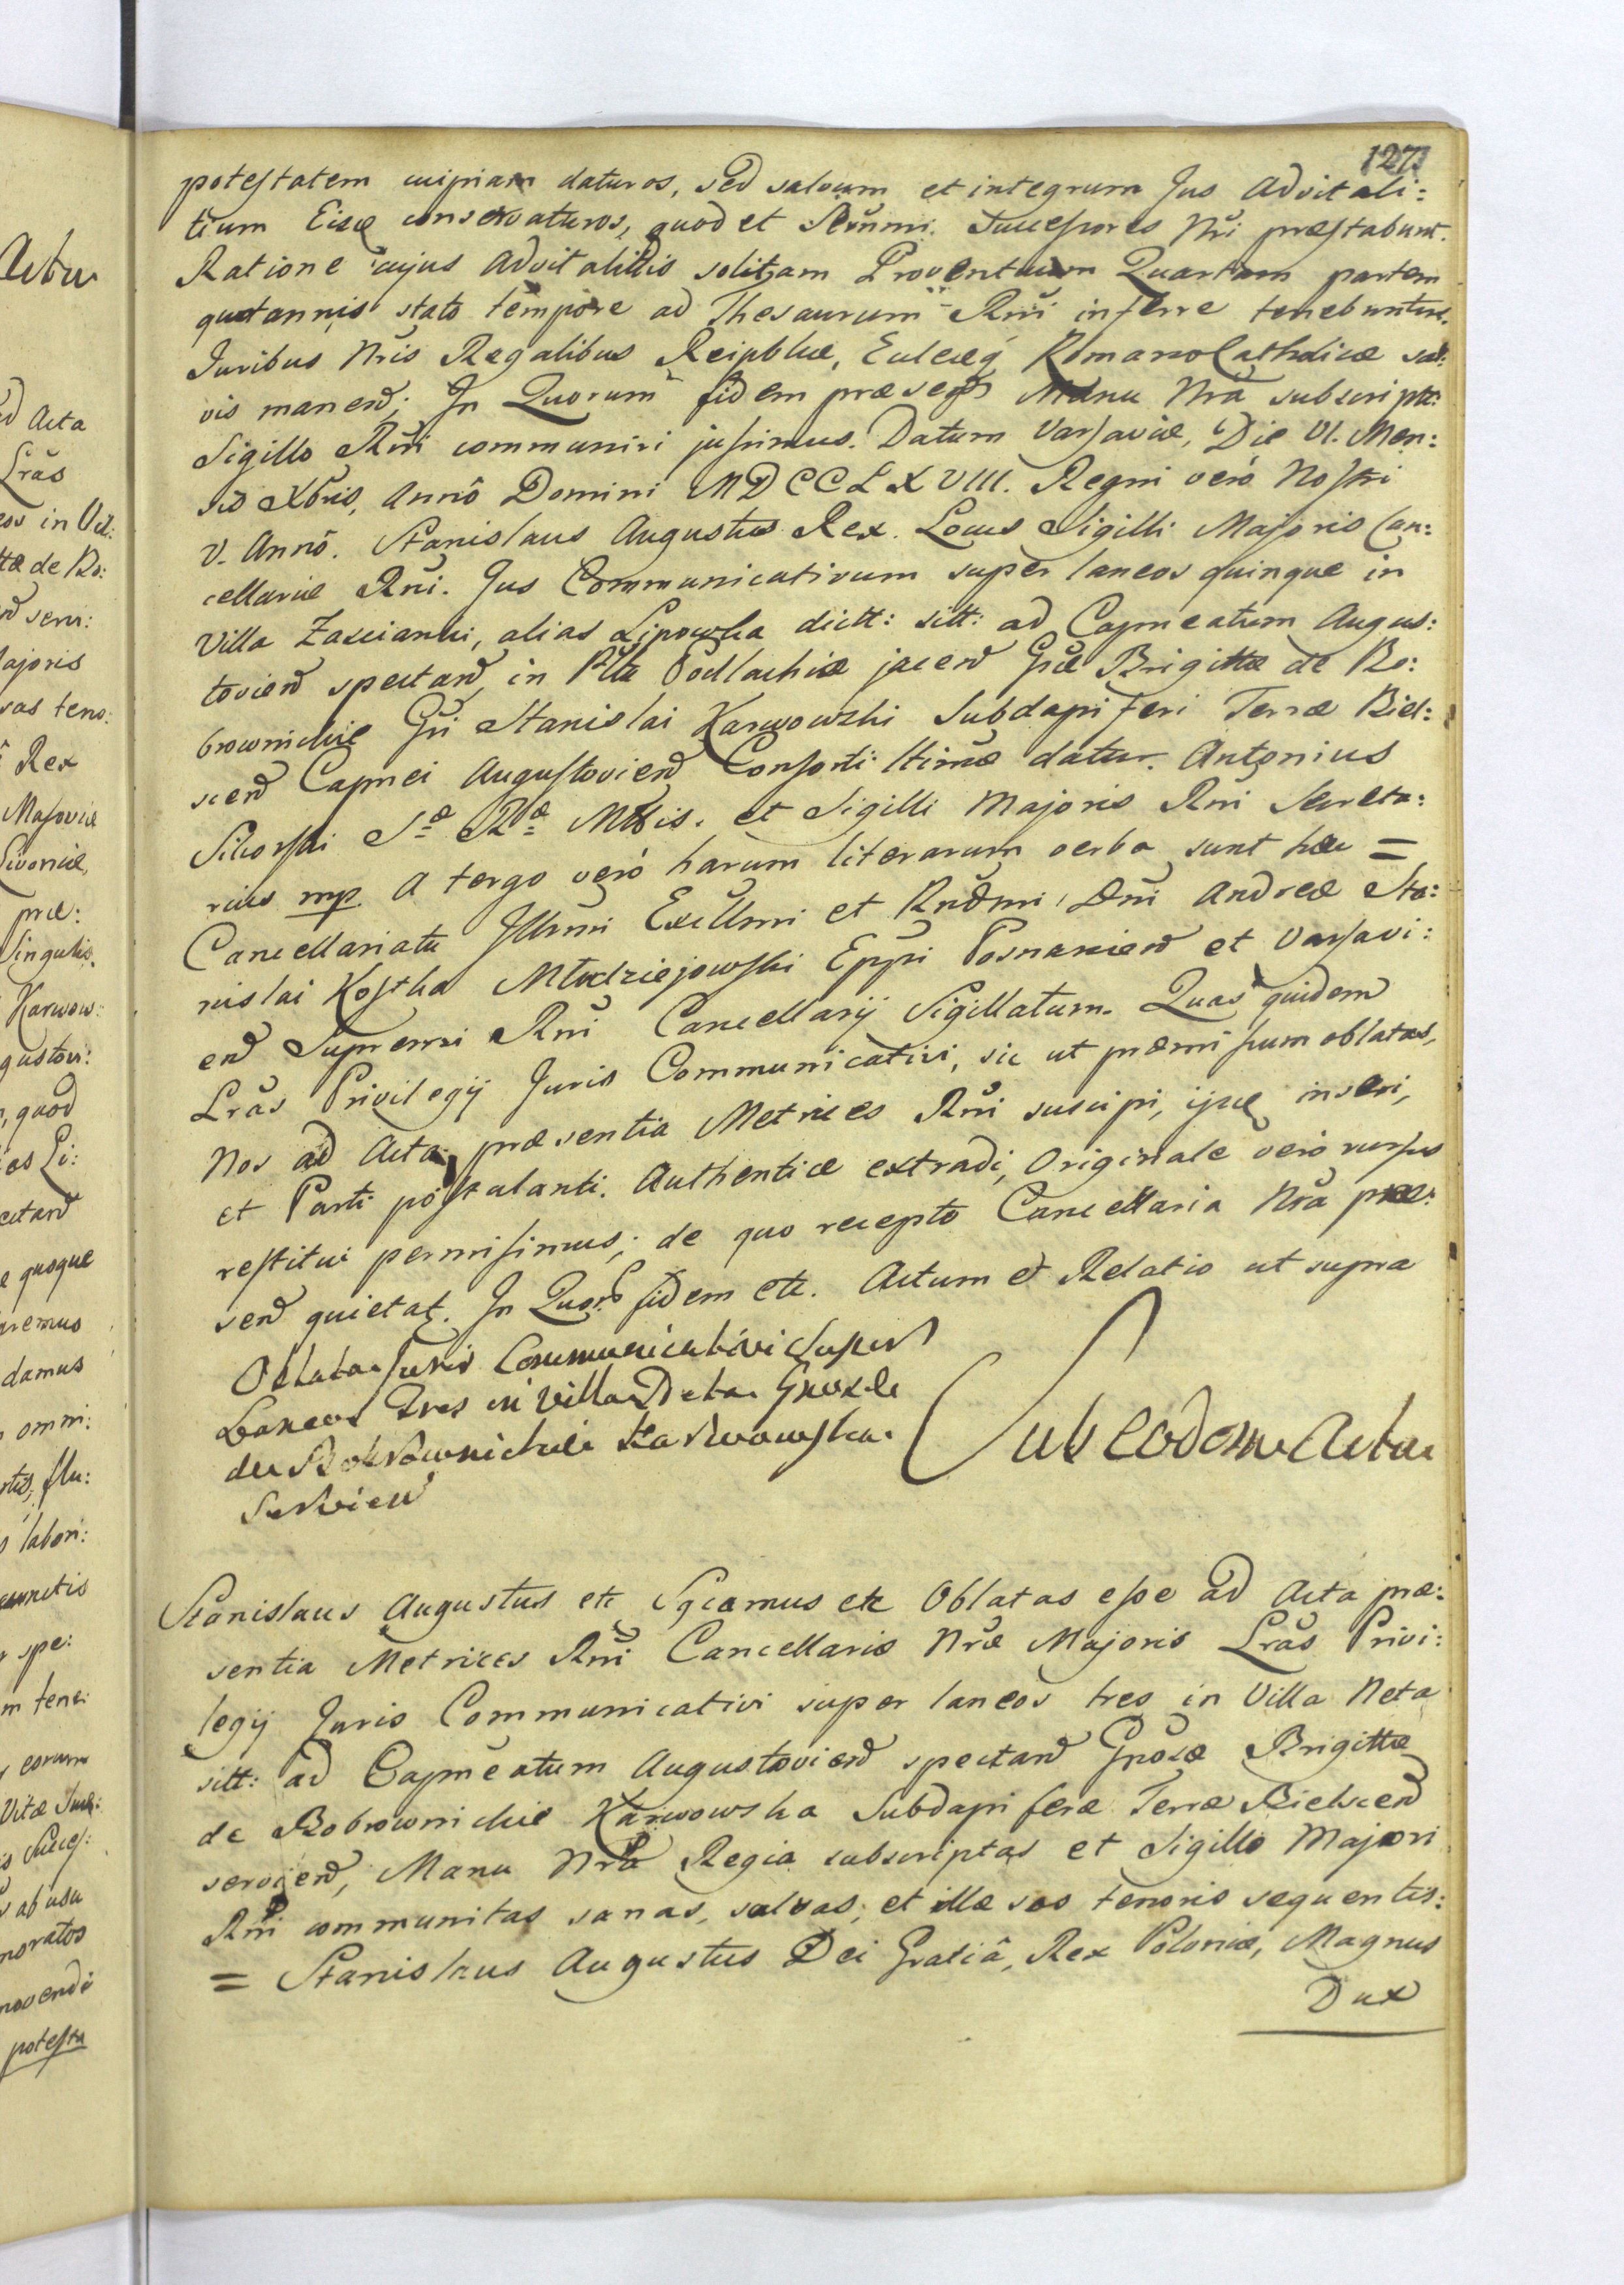 127
potestatem cuipiam daturos, sed salvum et integrum Jus Advitali:
tium Eisq conservaturos, quod et Serẽnmi. Successores Nri præstabunt.
Ratione cujus Advitalitatis solitam Proventuum Quartam partem
quotannis stato tempore ad Thesaurum Rni inferre tenebuntur.
Juribus Nris Regalibus Reipblcæ, Eclæq Romano Catholicæ sal:
vis manend; In Quorum fidem præsegs Manu Nra subscript:
Sigillo Rni communiri jussimus. Datum Varsaviæ, Die VI. Men:
sis Xbris, Annô Domini MDCCLXVIII. Regni verò Nostri
V. Annô. Stanislaus Augustus Rex. Locus Sigilli Majoris Can:
cellariæ Rni. Jus Communicativum super laneos quinque in
Villa Zascianki, alias Lipowka dictt: sitt: ad Capneatum Augus:
tovien spectan, in Pltu Podlachiæ jacen Gsæ Brigittæ de Bo:
brownickie Gsi Stanislai Karwowski Subdapiferi Terræ Biel:
scen Capnei Augustovien Consorti ltimæ datur. Antonius
Sikorski S. R. Mttis. et Sigilli Majoris Rni Secreta:
rius mp. A tergo verò harum literarum verba sunt hæc =
Cancellariatu Illrmi Excllmi et Rndmi Dni Andreæ Sta:
nislai Kostka Młodziejowski Eppi Posnanien et Varsavi:
en Supremi Rni Cancellarij Sigillatum. Quas quidem
Lras Privilegij Juris Communicativi, sic ut præmissum oblatas,
Nos ad Acta præsentia Metrices Rni suscipi, ijsq inseri,
et Parti postulanti Authenticæ extradi, Originale verò rursus
restitui permisimus; de quo recepto Cancellaria Nra præ:
sen quietat. In Quor fidem etc. Actum et Relatio ut supra
Oblata Juris Communicativi super
Laneos Tres in Villa Neta Gnosæ
de Bobrownickie Karwowska
Servien
Sub eodem Actu
Stanislaus Augustus etc Sgcamus etc Oblatas esse ad Acta præ:
sentia Metrices Rni Cancellariæ Nræ Majoris Lras Privi:
legij Juris Communicativi super laneos tres in Villa Neta
sitt: ad Capneatum Augustovien spectan Gnosæ Brigittæ
de Bobrownickie Karwowska Subdapiferæ Terræ Bielscen
servien, Manu Nra Regia subscriptas et Sigillo Majori
Rni communitas sanas, salvas, et illæsas tenoris sequentis:
= Stanislaus Augustus Dei Gratiâ, Rex Poloniæ, Magnus
Dux